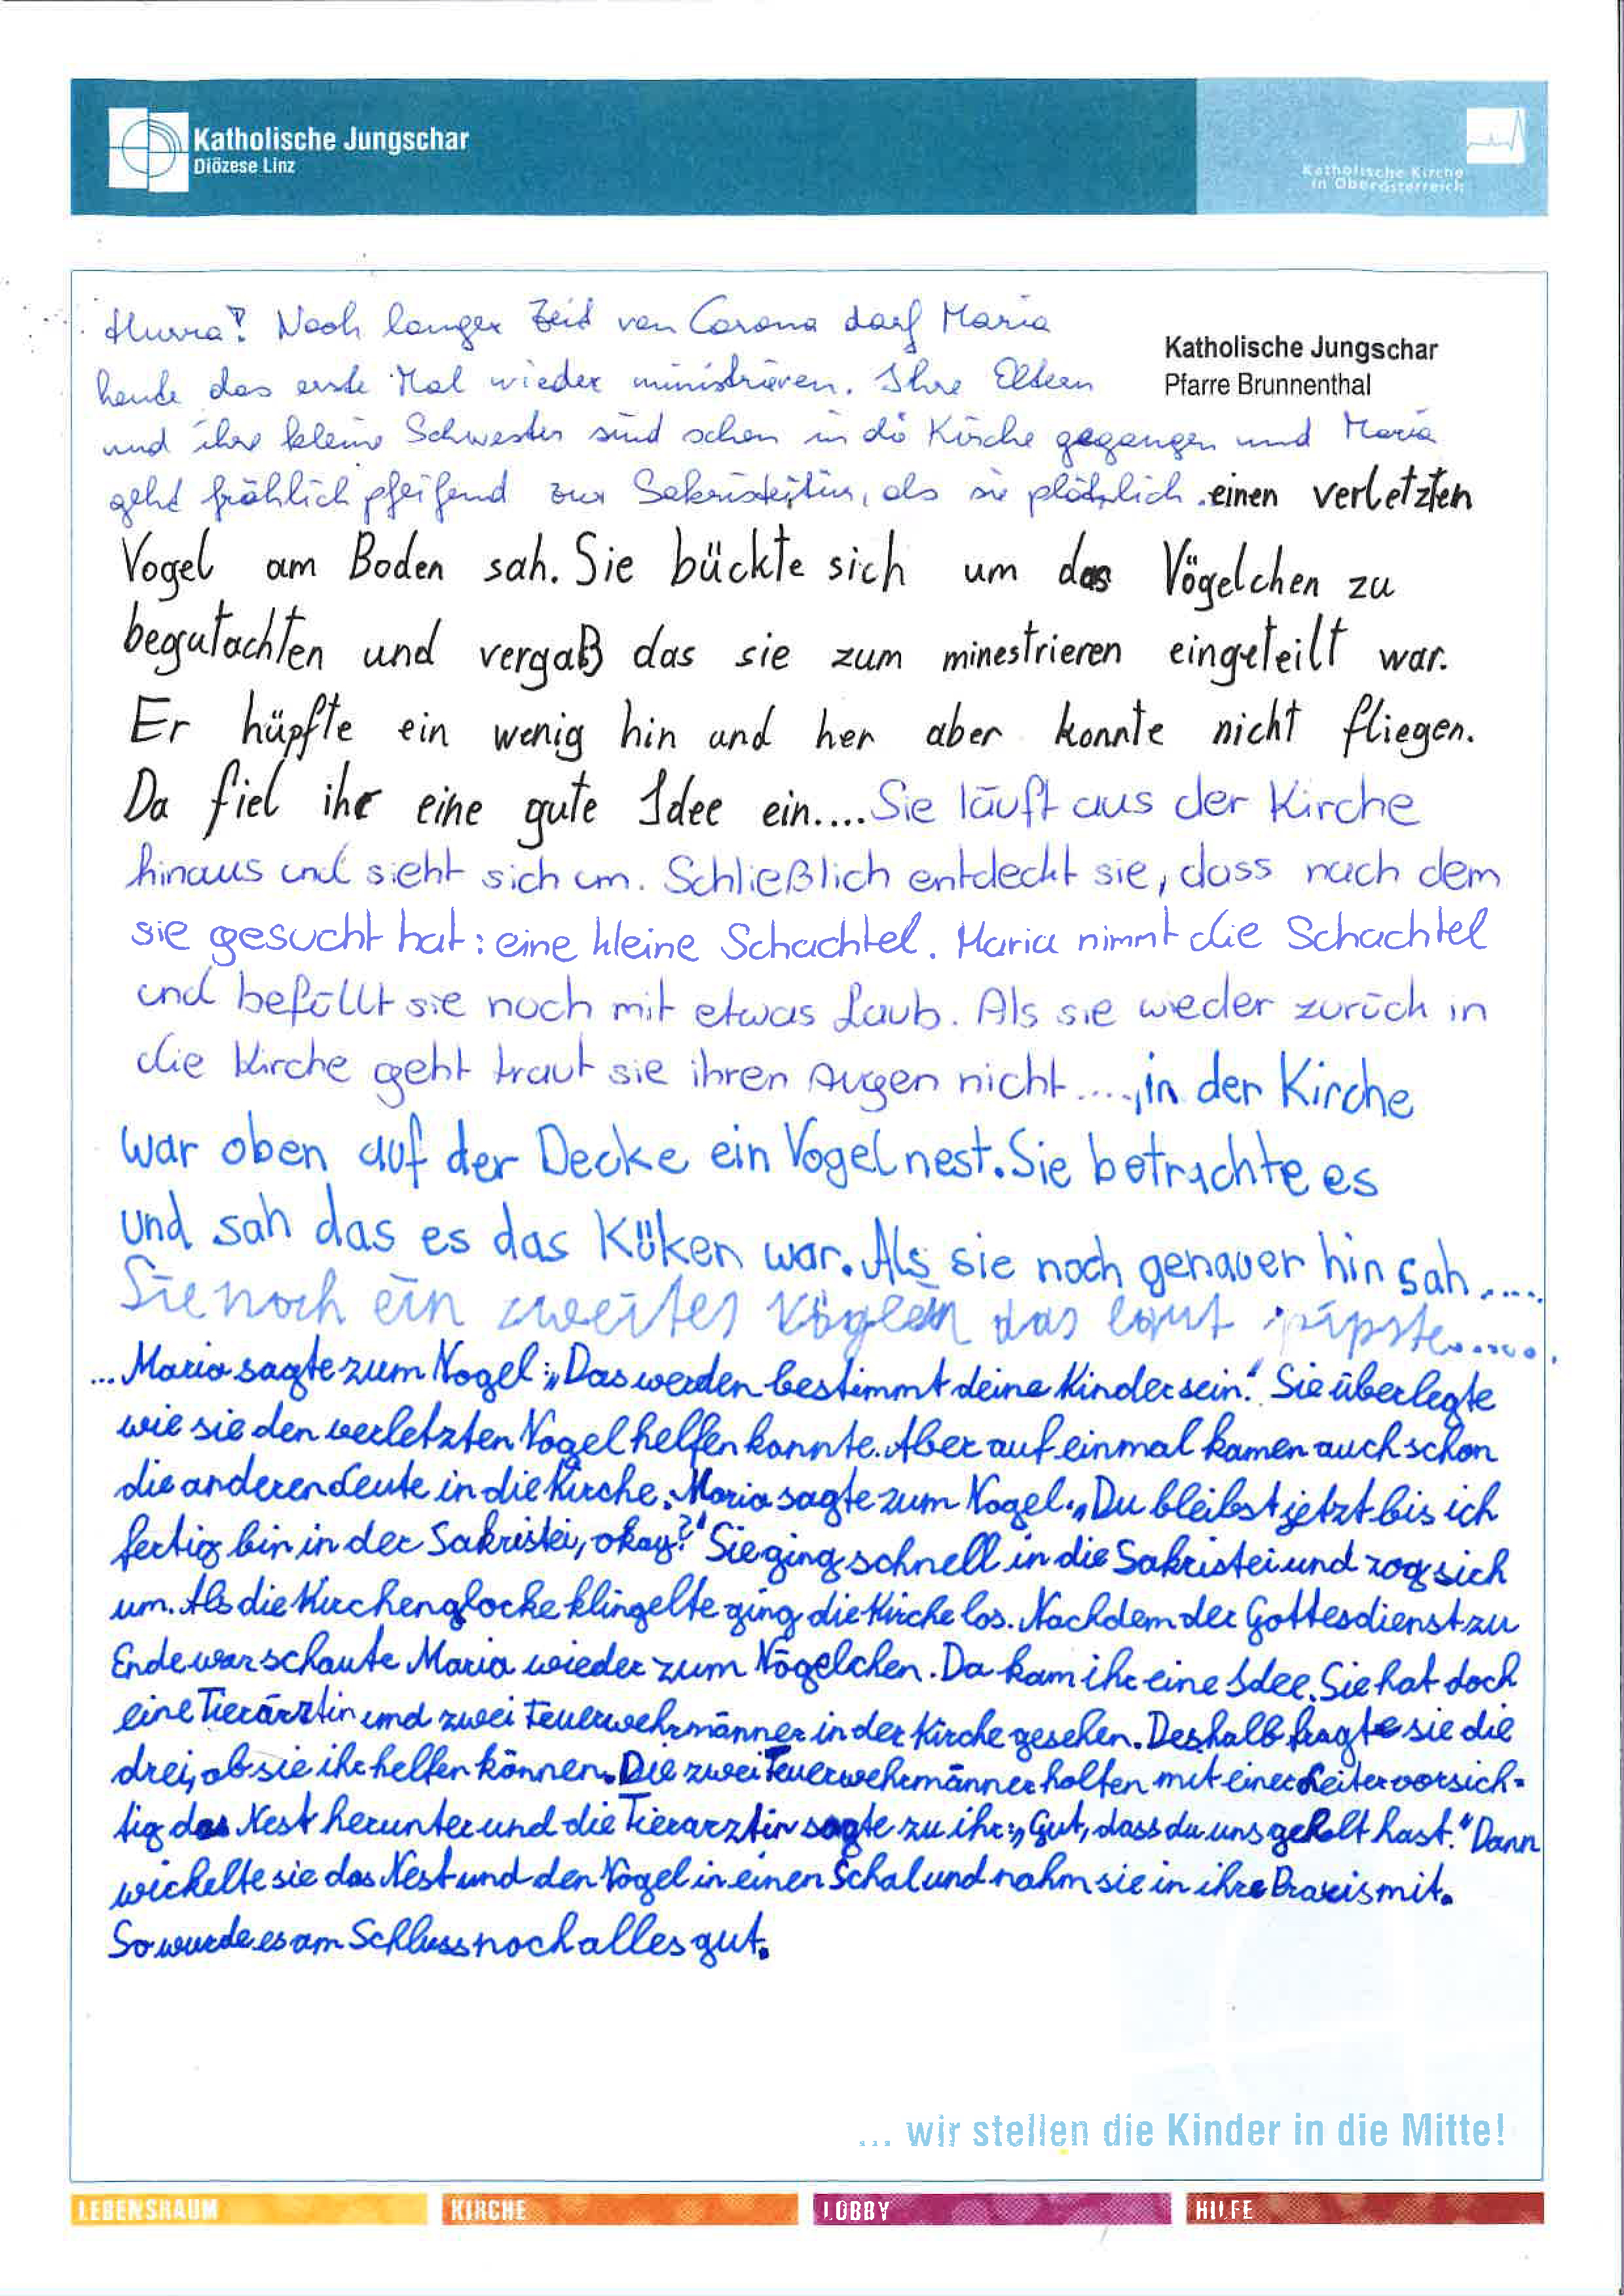 Katholische Jungschar
Diözese Linz
Katholische Kirche
in Oberösterreich
Katholische Jungschar
Pfarre Brunnenthal
Hurra! Nach langer Zeit von Corona darf Maria
heute das erste Mal wieder ministrieren. Ihre Eltern
und ihre kleine Schwester sind schon in die Kirche gegangen und Maria
geht fröhlich pfeifend zur Sakristeitür, als sie plötzlich einen verletzten
Vogel am Boden sah. Sie bückte sich um das Vögelchen zu
begutachten und vergaß das sie zum minestrieren eingeteilt war.
Er hüpfte ein wenig hin und her aber konnte nicht fliegen.
Da fiel ihr eine gute Idee ein.... Sie läuft aus der Kirche
hinaus und sieht sich um. Schließlich entdeckt sie, dass nach dem
sie gesucht hat: eine kleine Schachtel. Maria nimmt die Schachtel
und befüllt sie noch mit etwas Laub. Als sie wieder zurück in
die Kirche geht traut sie ihren Augen nicht...., in der Kirche
war oben auf der Decke ein Vogelnest. Sie betrachte es
und sah das es das Küken war. Als sie noch genauer hin sah.....
Sie noch ein zweites Vöglein das laut pipste.......
... Maria sagte zum Vogel: „Das werden bestimmt deine Kinder sein." Sie überlegte
wie sie den verletzten Vogel helfen konnte. Aber auf einmal kamen auch schon
die anderen Leute in die Kirche. Maria sagte zum Vogel: „Du bleibst jetzt bis ich
fertig bin in der Sakristei, okay?" Sie ging schnell in die Sakristei und zog sich
um. Als die Kirchenglocke klingelte ging die Kirche los. Nachdem der Gottesdienst zu
Ende war schaute Maria wieder zum Vögelchen. Da kam ihr eine Idee. Sie hat doch
eine Tierärztin und zwei Feuerwehrmänner in der Kirche gesehen. Deshalb fragte sie die
drei, ob sie ihr helfen können. Die zwei Feuerwehrmänner holten mit einer Leiter vorsich-
tig das Nest herunter und die Tierarztin sagte zu ihr: „Gut, dass du uns geholt hast." Dann
wickelte sie das Nest und den Vogel in einen Schal und nahm sie in ihre Praxis mit.
So wurde es am Schluss noch alles gut.
... wir stellen die Kinder in die Mitte!
LEBENSRAUM KIRCHE LOBBY HILFE